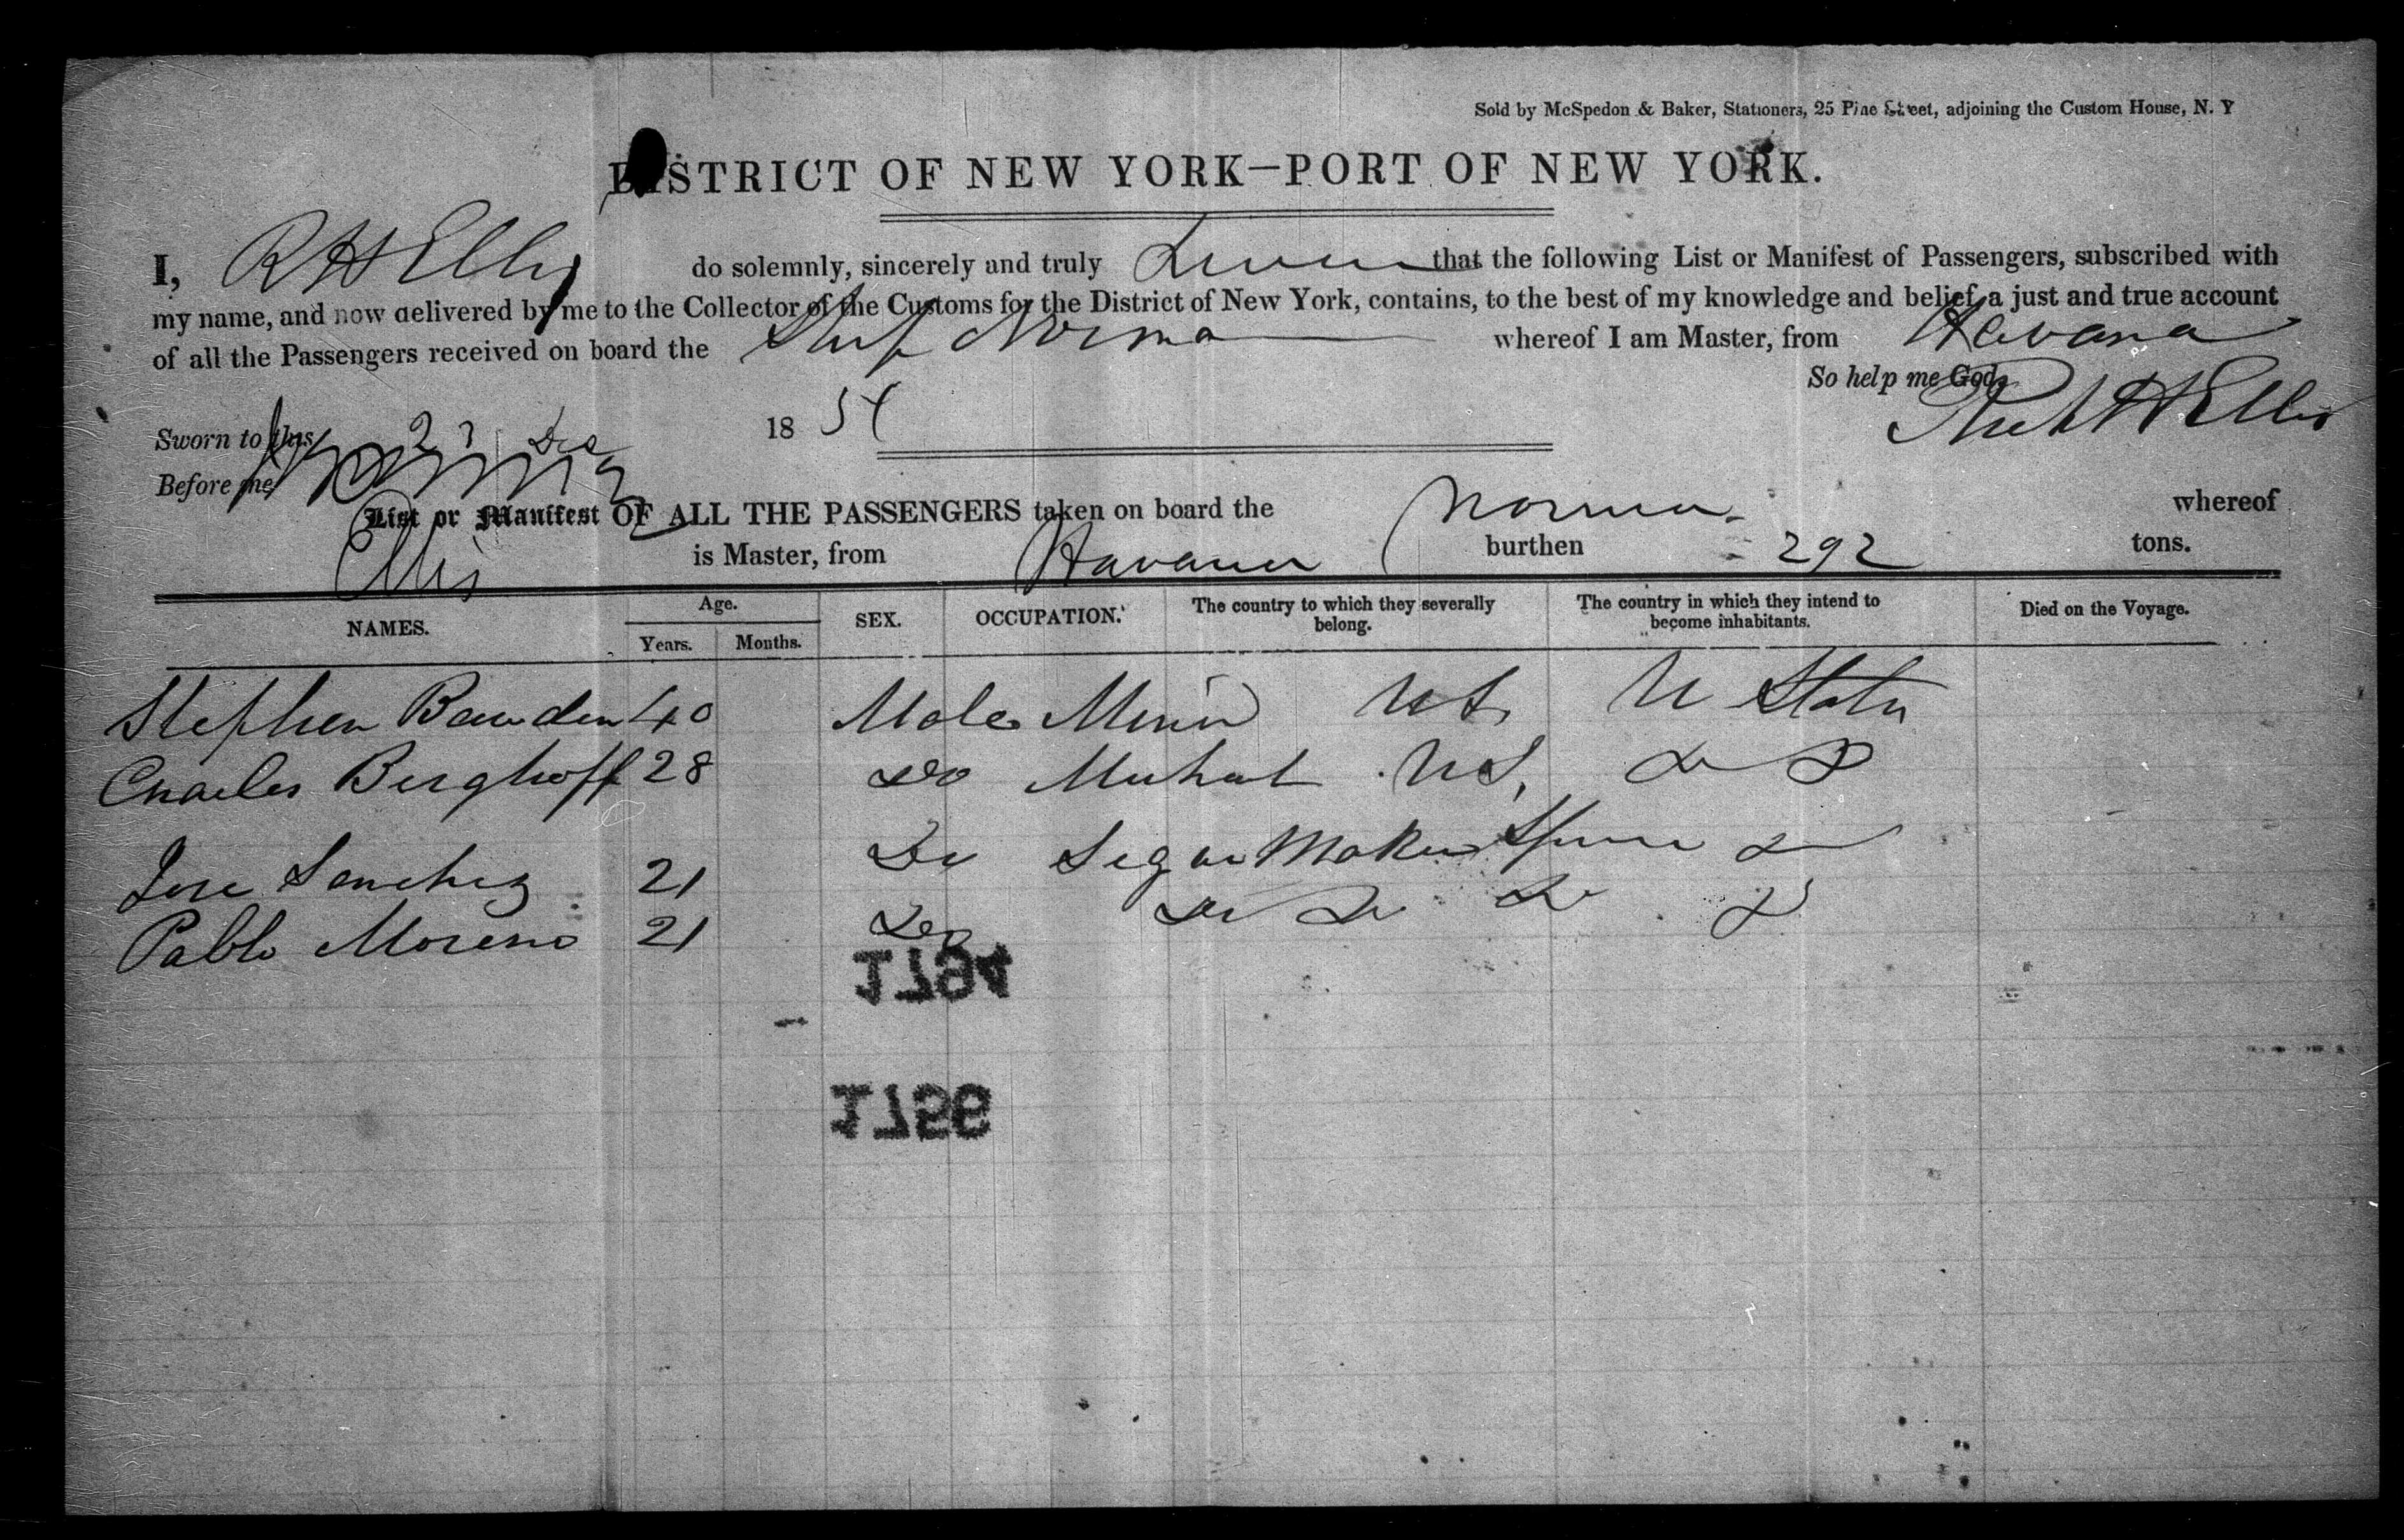 Sold by McSpedon & Baker, Stationers, 25 Pine Street, adjoining the Custom House, N. Y
DISTRICT OF NEW YORK—PORT OF NEW YORK.
I, R H Ellis do solemnly, sincerely and truly that the following List or Manifest of Passengers, subscribed with
my name, and now delivered by me to the Collector of the Customs for the District of New York, contains, to the best of my knowledge and belief, a just and true account
of all the Passengers received on board the Norma whereof I am Master, from Havana
So help me God.
H Ellis
Sworn to this 23 Dec 18
Before me
List or Manifest OF ALL THE PASSENGERS taken on board the Norma whereof
Ellis is Master, from Havana burthen 292 tons.
NAMES. Age. Years. Months. SEX. OCCUPATION. The country to which they severally belong. The country in which they intend to become inhabitants. Died on the Voyage.
Stephen Bawden 40 Male Miner US U States
Charles Berghoff 28 Do US, Do
Jose Sanchez 21 Do Segar Maker Do
Pablo Moreno 21 Do Do Do Do Do
1794
1756